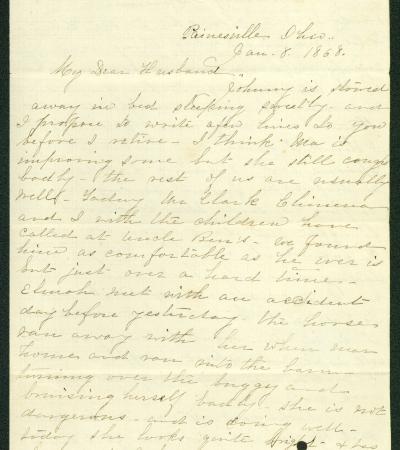 Painesville Ohio.
Jan. 8. 1868.
My Dear Husband,
Johnny is stored
away in bed sleeping sweetly. and
I propose to write a few lines to you
before I retire - I think Mea is
improving some but she still coughs
badly - the rest of us are usually
well - Today Mr Clark
and I with the children have
called at Uncle Ben's - we found
him as comfortable as he ever is
but just over a hard time -
met with an accident
day before yesterday. the horse
ran away with her when near
home and ran into the barn
turning over the buggy and
bruising herself badly - she is not
dangerous - and is doing well -
today she looks quite bright - & has